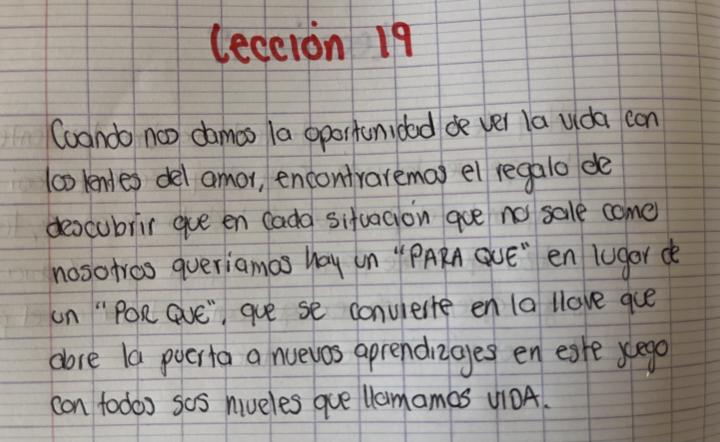 Lección 19
Cuando nos damos la oportunidad de ver la vida con
los lentes del amor, encontraremos el regalo de
descubrir que en cada situación que no sale como
nosotros queriamos hay un "PARA QUE" en lugar de
un "POR QUE", que se convierte en la llave que
abre la puerta a nuevos aprendizajes en este juego
con todos sus niveles que llamamos VIDA.